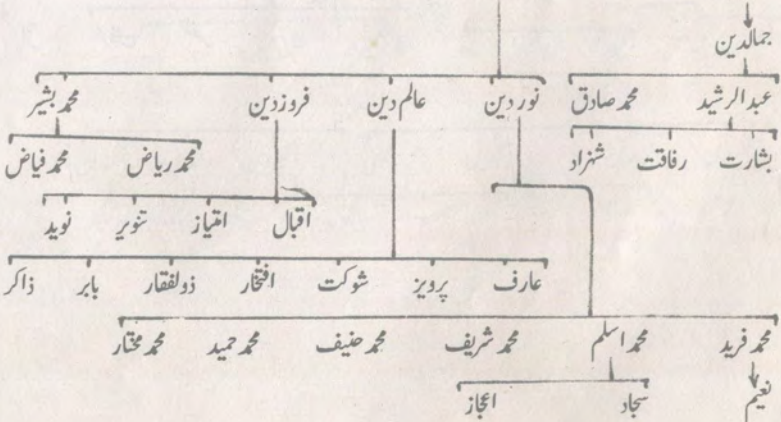 جمالدین
عبدالرشید محمد صادق نور دین عالم دین فروز دین محمد بشیر
بشارت رفاقت شہزاد محمد ریاض محمد فیاض
اقبال امتیاز تنویر نوید
عارف پرویز شوکت افتخار ذولفقار بابر ذاکر
محمد فرید محمد اسلم محمد شریف محمد حنیف محمد حمید محمد مختار
نعیم سجاد اعجاز